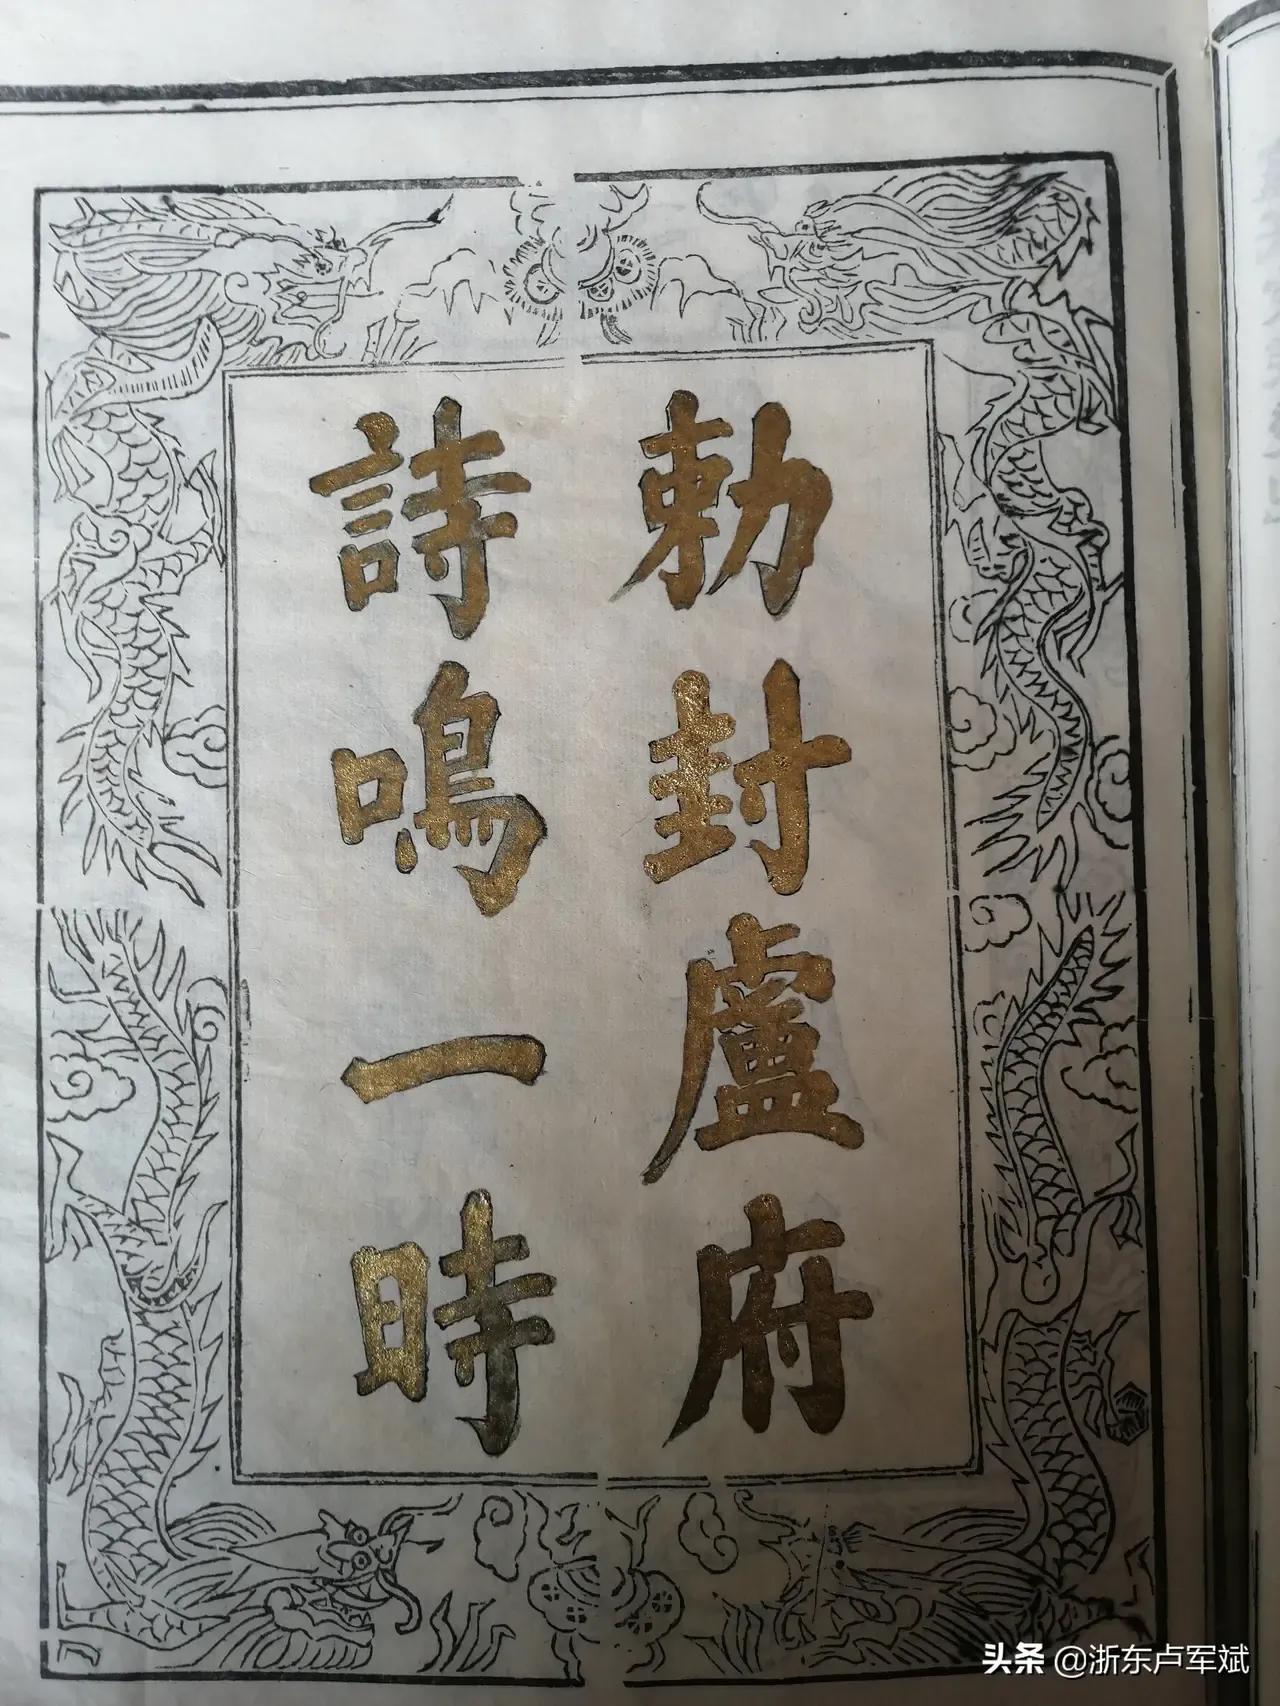 勅封盧府
詩鳴一時
头条 @浙东卢军斌